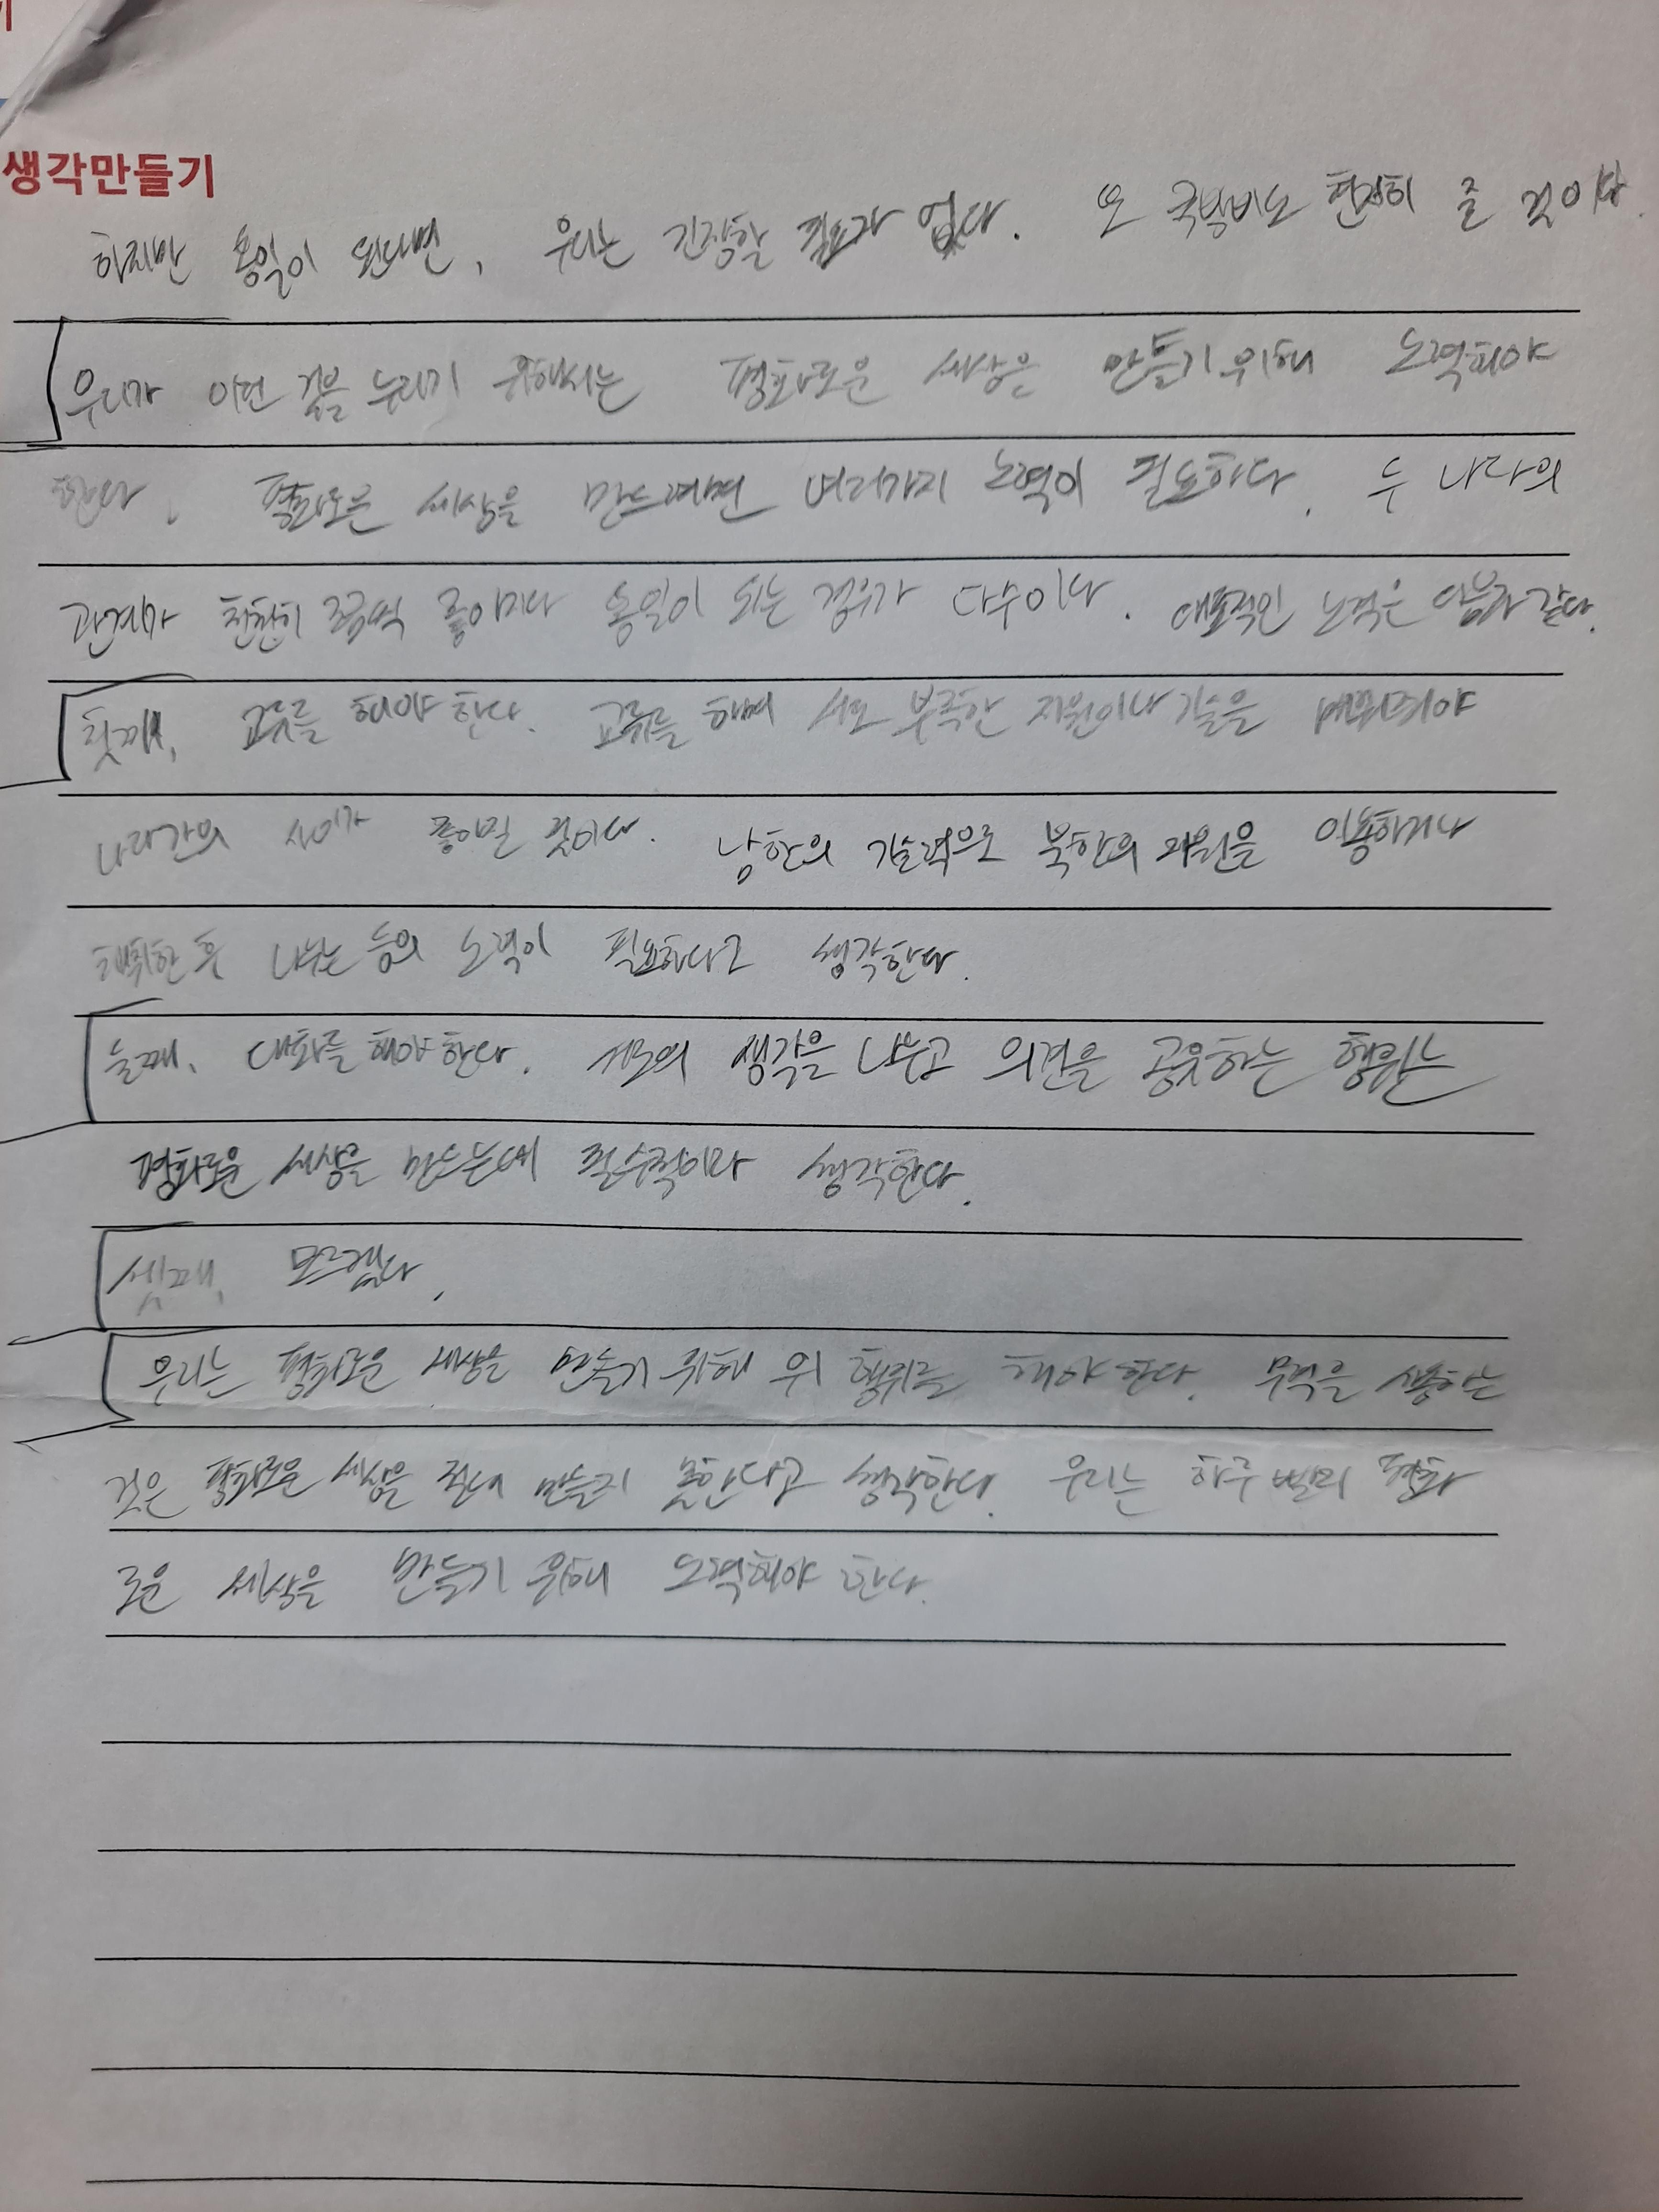 생각만들기
하지만 통일이 된다면, 우리는 긴장할 필요가 없다. 또 국방비도 현저히 줄 것이다.
우리가 이런 것을 누리기 위해서는 평화로운 세상을 만들기 위해 노력해야
한다. 평화로운 세상을 만드려면 여러가지 노력이 필요하다. 두 나라의
관계가 천천히 조금씩 좋아지다 통일이 되는 경우가 다수이다. 대표적인 노력은 다음과 같다.
첫째, 교류를 해야 한다. 교류를 하며 서로 부족한 자원이나 기술을
나라간의 사이가 좋아질 것이다. 남한의 기술력으로 북한의 자원을 이용하거나
채취한 후 나누는 등의 노력이 필요하다고 생각한다.
둘째, 대화를 해야 한다. 서로의 생각을 나누고 의견을 공유하는 행위는
평화로운 세상을 만드는데 필수적이라 생각한다.
셋째, 모르겠다.
우리는 평화로운 세상을 만들기 위해 위 행위를 해야 한다. 무력을 사용하는
것은 평화로운 세상을 절대 만들지 못한다고 생각한다. 우리는 하루 빨리 평화
로운 세상을 만들기 위해 노력해야 한다.